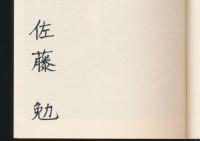 佐藤勉